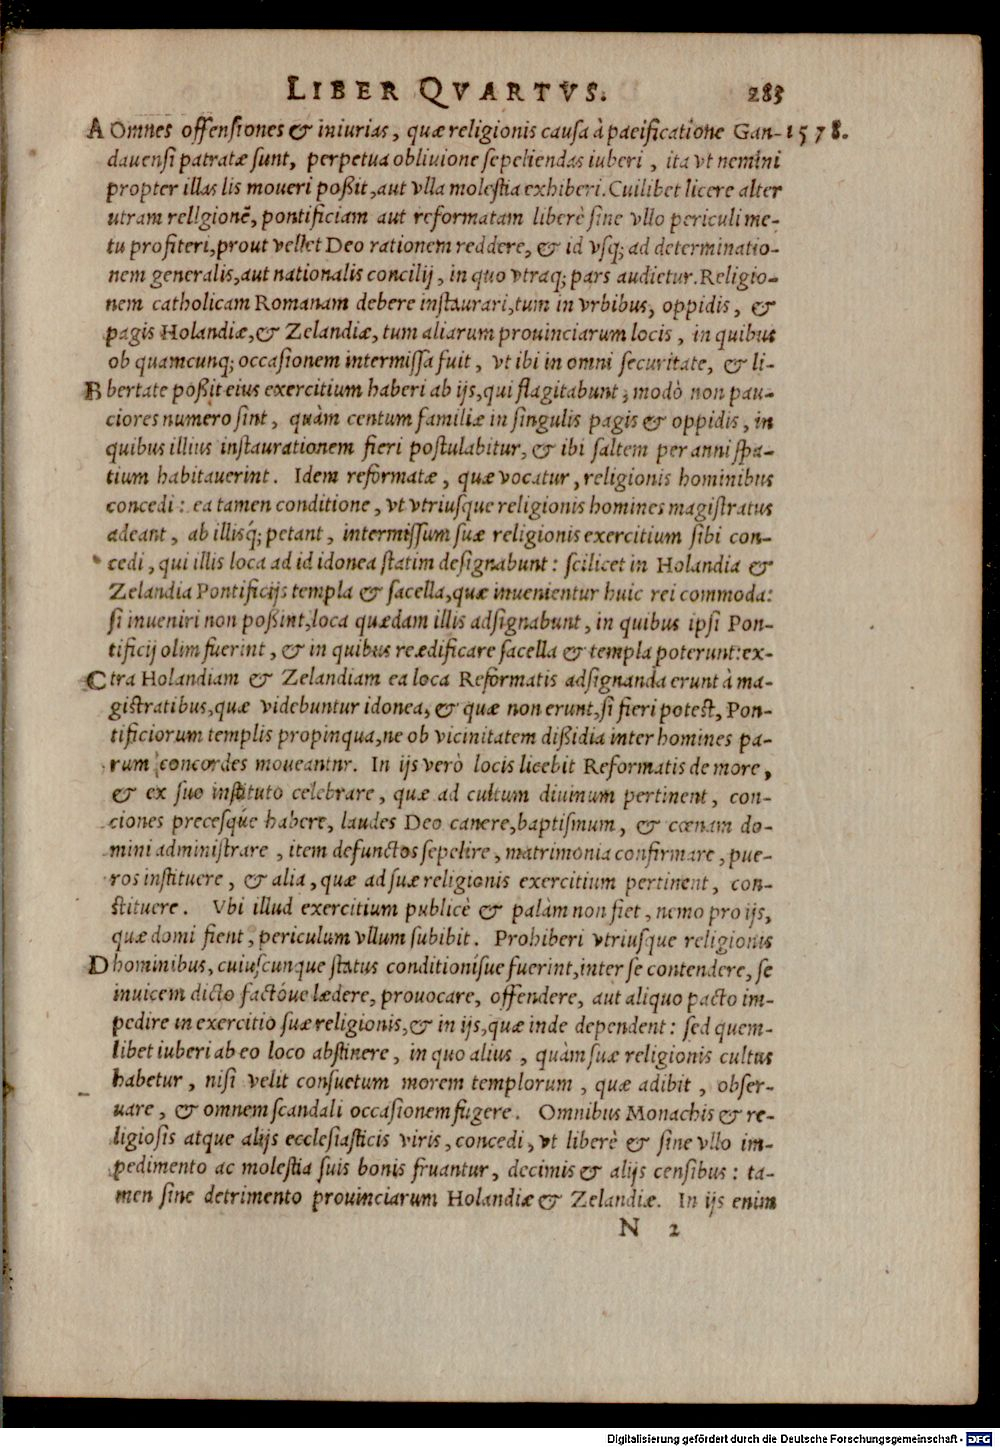 LIBER QVARTVS. 283
A Omnes offensiones & iniurias, quæ religionis causa à pacificatione Gan- 1578.
dauensi patratæ sunt, perpetua obliuione sepeliendas iuberi, ita vt nemini
propter illas lis moueri poßit, aut vlla molestia exhiberi. Cuilibet licere alter
utram religionẽ, pontificiam aut reformatam liberè sine vllo periculi me-
tu profiteri, prout vellet Deo rationem reddere, & id vsq; ad determinatio-
nem generalis, aut nationalis concilij, in quo vtraq; pars audietur. Religio-
nem catholicam Romanam debere instaurari, tum in vrbibus, oppidis, &
pagis Holandiæ, & Zelandiæ, tum aliarum prouinciarum locis, in quibus
ob quamcunq; occasionem intermissa fuit, vt ibi in omni securitate, & li-
B bertate poßit eius exercitium haberi ab ijs, qui flagitabunt; modò non pau-
ciores numero sint, quàm centum familiæ in singulis pagis & oppidis, in
quibus illius instaurationem fieri postulabitur, & ibi saltem per anni spa-
tium habitauerint. Idem reformatæ, quæ vocatur, religionis hominibus
concedi: ea tamen conditione, vt vtriusque religionis homines magistratus
adeant, ab illisq́; petant, intermissum suæ religionis exercitium sibi con-
cedi, qui illis loca ad id idonea statim designabunt: scilicet in Holandia &
Zelandia Pontificijs templa & sacella, quæ inuenientur huic rei commoda:
si inueniri non poßint, loca quædam illis adsignabunt, in quibus ipsi Pon-
tificij olim fuerint, & in quibus reædificare sacella & templa poterunt: ex-
C tra Holandiam & Zelandiam ea loca Reformatis adsignanda erunt à ma-
gistratibus, quæ videbuntur idonea, & quæ non erunt, si fieri potest, Pon-
tificiorum templis propinqua, ne ob vicinitatem dißidia inter homines pa-
rum concordes moueantnr. In ijs verò locis licebit Reformatis de more,
& ex suo instituto celebrare, quæ ad cultum diuinum pertinent, con-
ciones precesque habere, laudes Deo canere, baptismum, & cœnam do-
mini administrare, item defunctos sepelire, matrimonia confirmare, pue-
ros instituere, & alia, quæ ad suæ religionis exercitium pertinent, con-
stituere. Vbi illud exercitium publicè & palàm non fiet, nemo pro ijs,
quæ domi fient, periculum vllum subibit. Prohiberi vtriusque religionis
D hominibus, cuiuscunque status conditionisue fuerint, inter se contendere, se
inuicem dicto factóue lædere, prouocare, offendere, aut aliquo pacto im-
pedire in exercitio suæ religionis, & in ijs, quæ inde dependent: sed quem-
libet iuberi ab eo loco abstinere, in quo alius, quàm suæ religionis cultus
habetur, nisi velit consuetum morem templorum, quæ adibit, obser-
uare, & omnem scandali occasionem fugere. Omnibus Monachis & re-
ligiosis atque alijs ecclesiasticis viris, concedi, vt liberè & sine vllo im-
pedimento ac molestia suis bonis fruantur, decimis & alijs censibus: ta-
men sine detrimento prouinciarum Holandiæ & Zelandiæ. In ijs enim
N 2
Digitalisierung gefördert durch die Deutsche Forschungsgemeinschaft - DFG